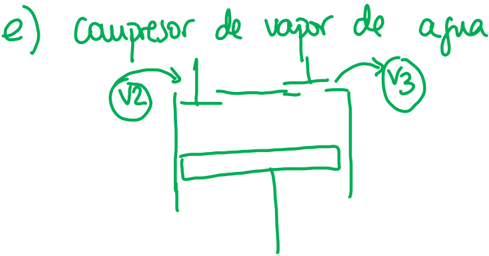 e) compresor de vapor de agua
V2
V3